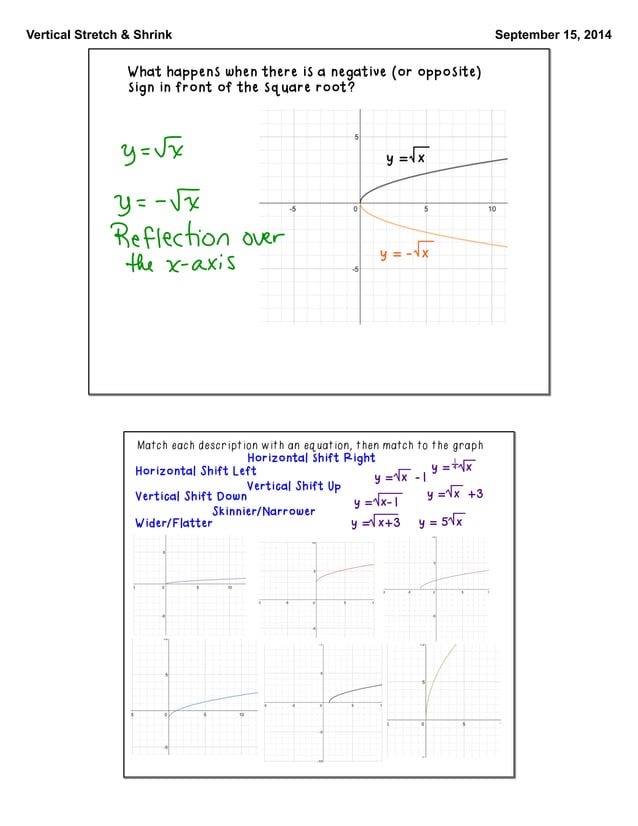 Vertical Stretch & Shrink
September 15, 2014
What happens when there is a negative (or opposite)
sign in front of the square root?
y = √x
y = -√x
Reflection over
the x-axis
y = √x
y = -√x
5
-5
0
5
10
-5
Match each description with an equation, then match to the graph
Horizontal Shift Right
Horizontal Shift Left
Vertical Shift Up
Vertical Shift Down
Skinnier/Narrower
Wider/Flatter
y = √x - 1
y = √x + 3
y = √x-1
y = √x+3
y = 5√x